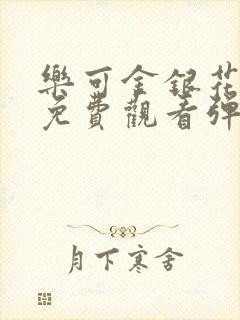 樂可金銀花
免費觀看彈
月下寒舍